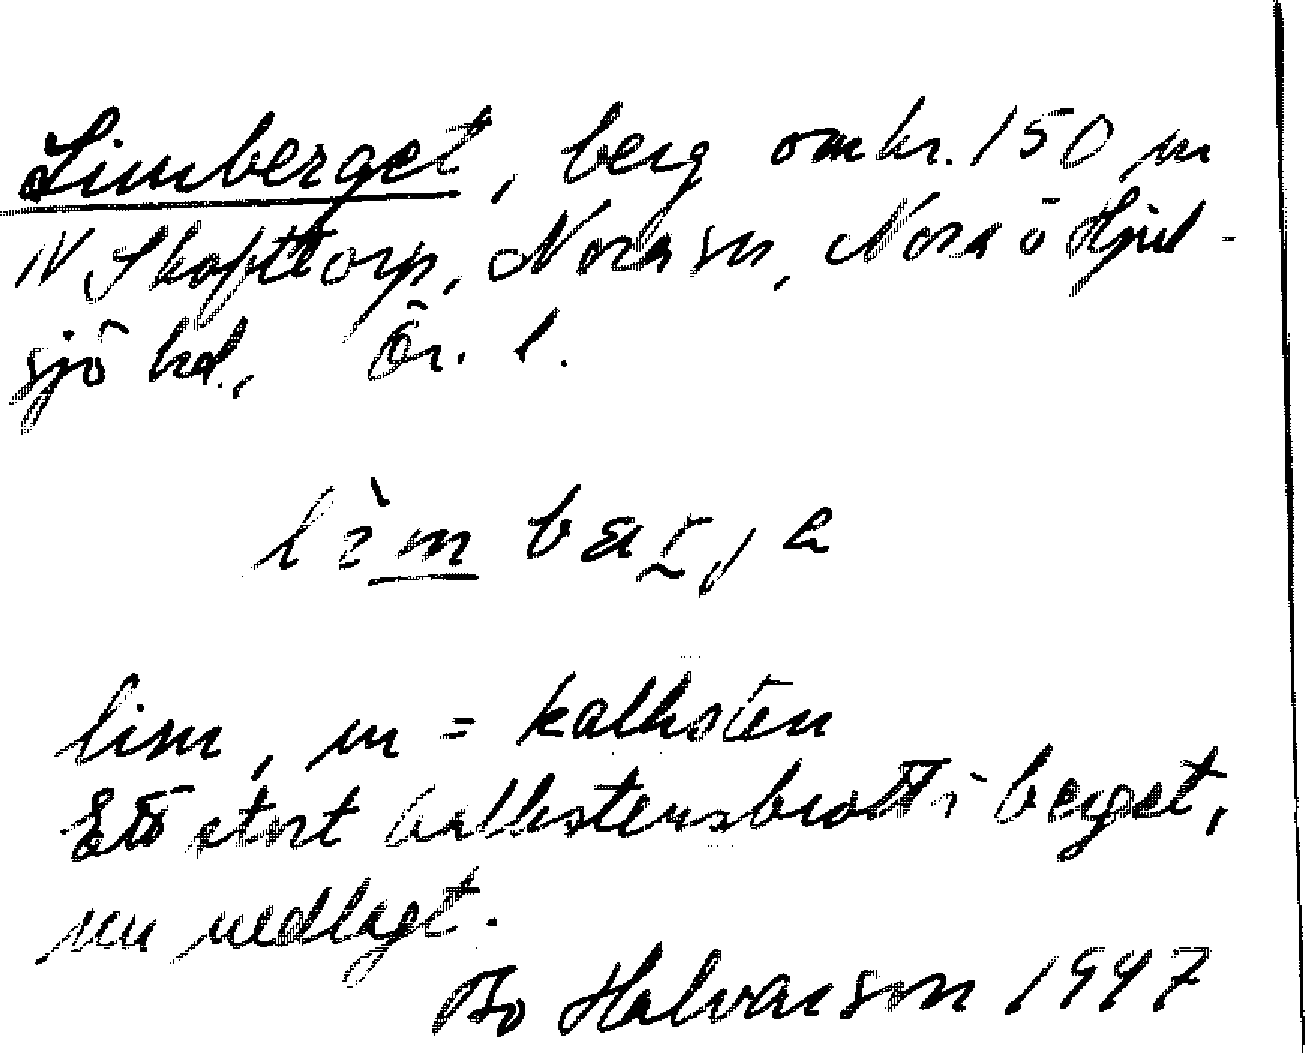 Limberget, berg omkr. 150 m
N Skofttorp, Nora sn, Nora o Hjul-
sjö hd., Ör. l.
lim, m = kalksten
Ett stort kalkstensbrott i berget,
nu nedlagt.
Bo Halvarson 1947